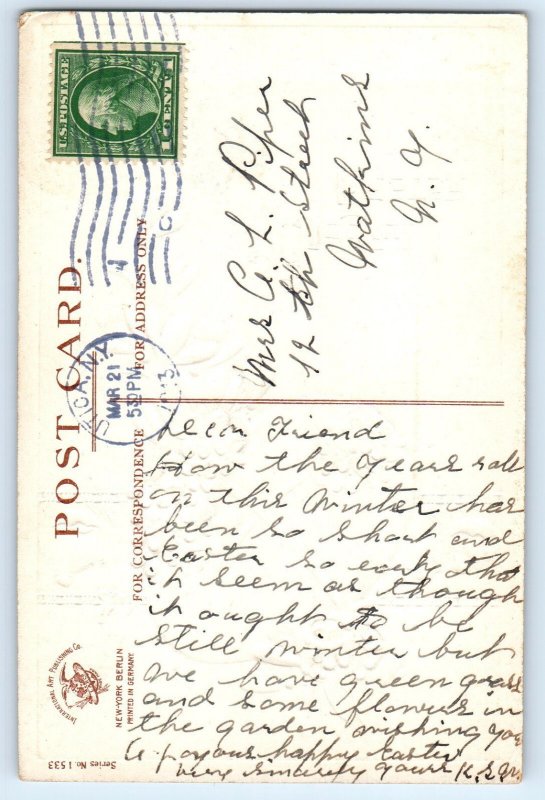 POST CARD.
FOR CORRESPONDENCE
FOR ADDRESS ONLY
U.S. POSTAGE
1 CENT 1
UTICA, N.Y.
MAR 21
530 PM
1913
1
C
Mrs A. L. Piper
12 th Street
Watkins
N. Y.
Dear Friend
How the years roll
on this winter has
been so short and
Easter so early that
it seem as though
it ought to be
still winter but
we have green grass
and some flowers in
the garden wishing you
a joyous happy Easter
very sincerely yours K.S.M.
INTERNATIONAL ART PUBLISHING CO.
NEW-YORK BERLIN
PRINTED IN GERMANY
Series No 1533